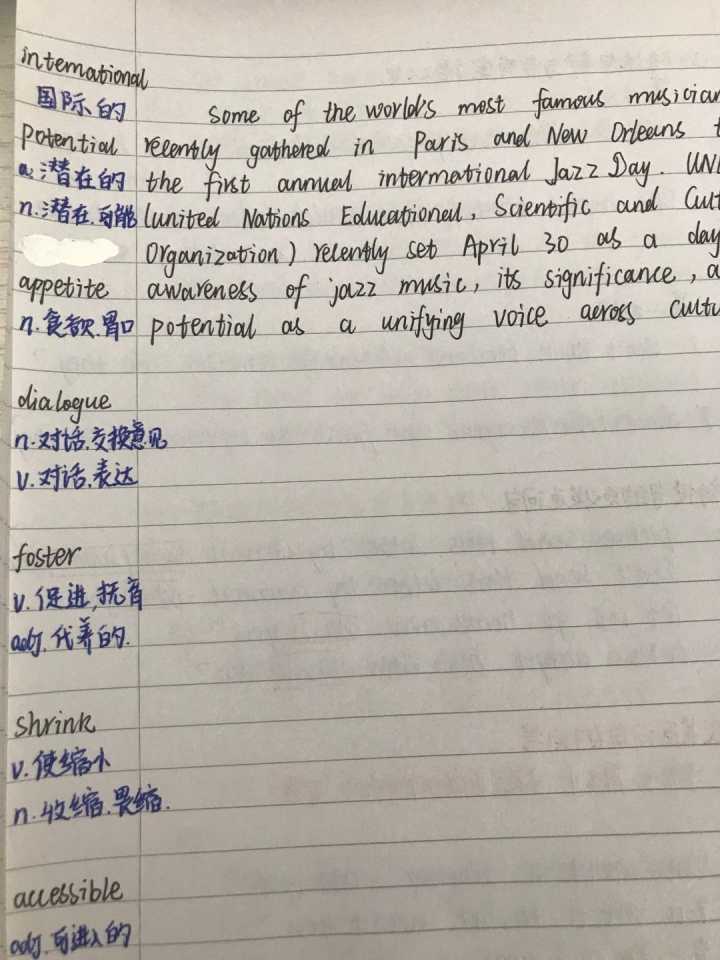 international
国际的
Some of the world's most famous musician
potential recently gathered in Paris and New Orleans t
a.潜在的 the first annual intermational Jazz Day. UN
n.潜在.可能 (united Nations Educational, Scientific and Cult
Organization) recently set April 30 as a day
appetite awareness of jazz music, its significance, a
n.食欲.胃口 potential as a unifying voice across cultu
dialogue
n.对话.交换意见
v.对话.表达
foster
v.促进,抚育
adj.代养的.
shrink
v.使缩小
n.收缩.畏缩.
accessible
adj.可进入的